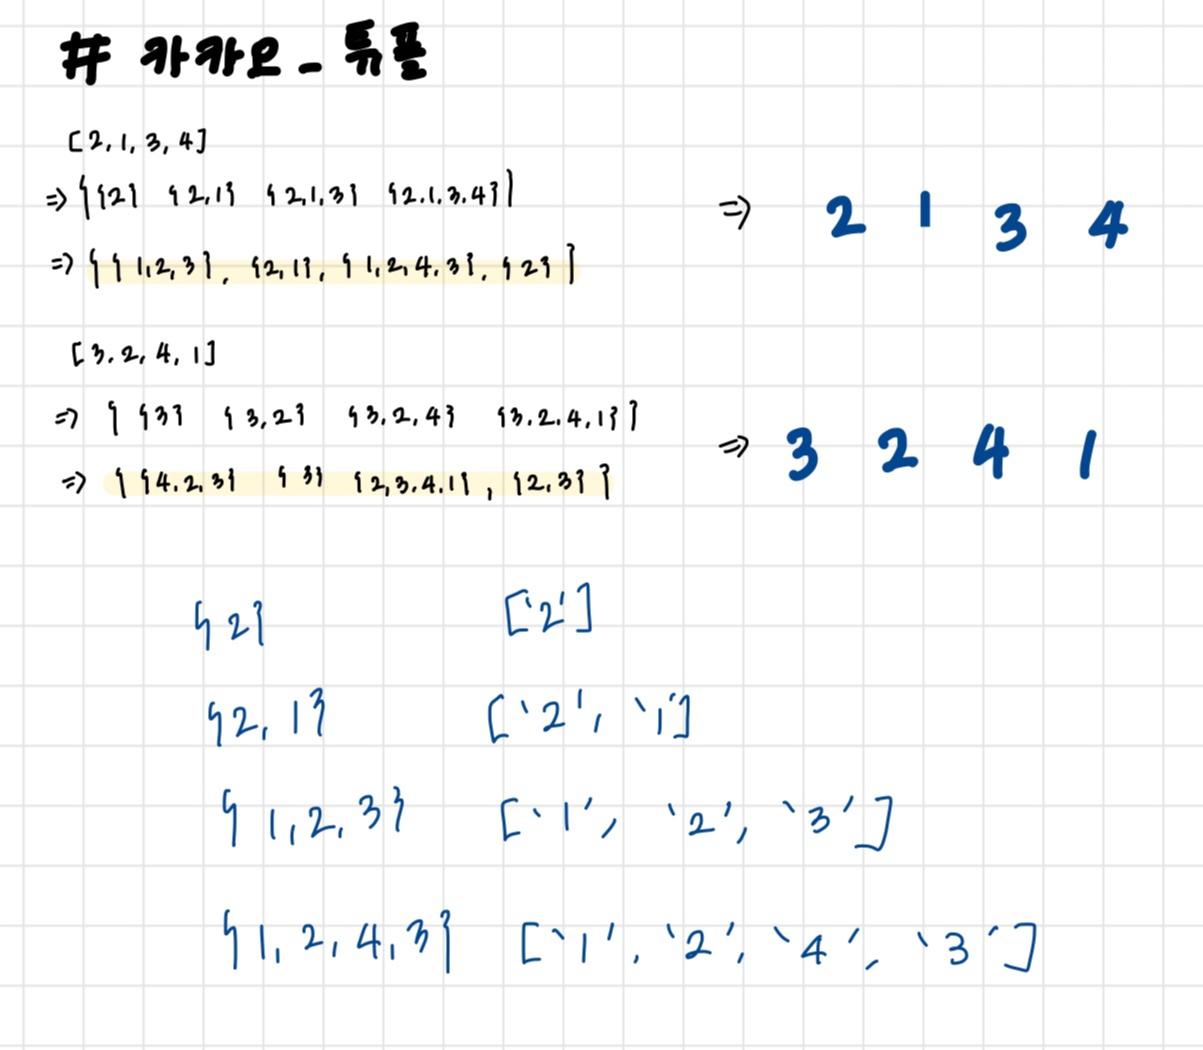 # 카카오 - 튜플
[2, 1, 3, 4]
=> {{2} {2,1} {2,1,3} {2.1.3.4}} => 2 1 3 4
=> {{1,2,3}, {2,1}, {1,2,4.3}, {2}}
[3.2,4,1]
=> {{3} {3,2} {3,2,4} {3.2.4,1}} => 3 2 4 1
=> {{4.2,3} {3} {2,3.4.1}, {2.3}}
{2} ['2']
{2, 1} ['2', '1']
{1,2,3} ['1', '2', '3']
{1,2,4,3} ['1', '2', '4', '3']